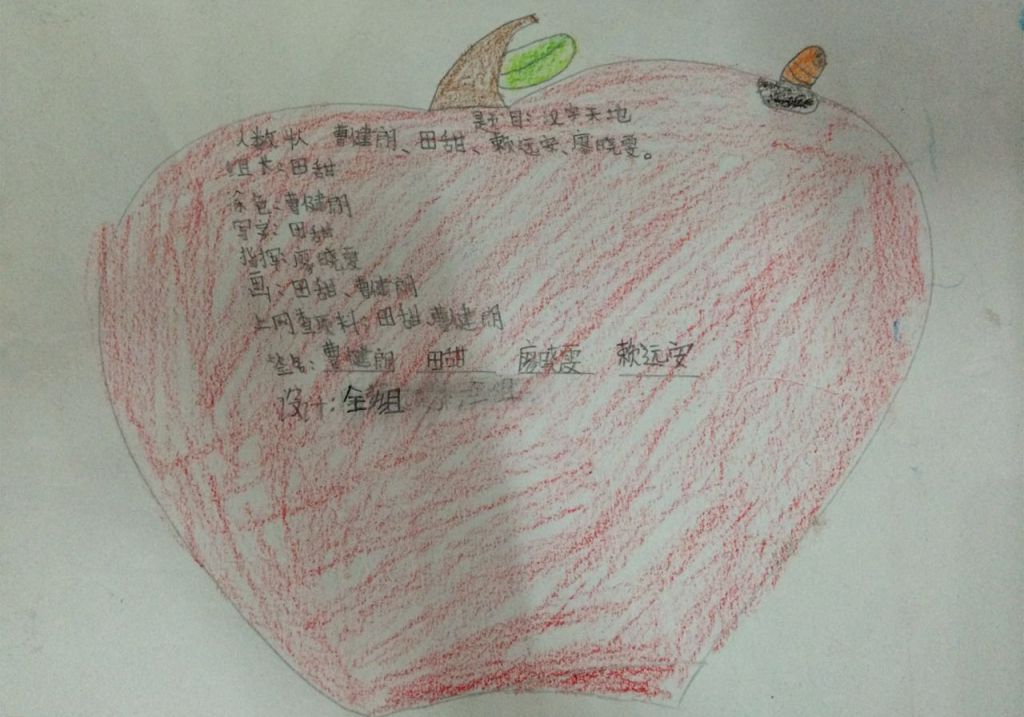 题目:汉字天地
人数:4人 曹健朗、田甜、赖远安、廖晓雯。
组长:田甜
涂色:曹健朗
写字:田甜
指挥:廖晓雯
画:田甜、曹健朗
上网查资料:田甜、曹健朗
签名:曹健朗 田甜 廖晓雯 赖远安
设计:全组